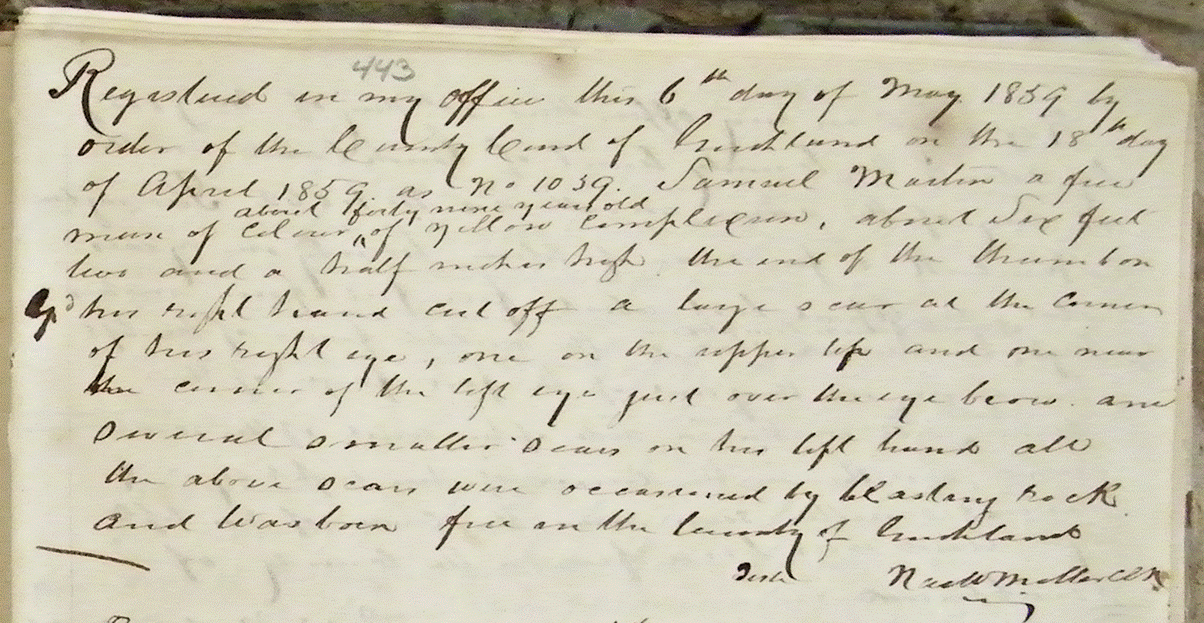 443
Registered in my office this 6th day of May 1859 by
order of the County Court of Goochland on the 18th day
of April 1859 as No 1039. Samuel Martin a free
about forty nine years old
man of colour ^ of yellow complexion, about Six feet
two and a half inches high. the end of the thumb on
his right hand cut off a large scar at the corner
of his right eye, one on the upper lip and one near
the corner of the left eye just over the eye brow. and
several smaller scars on his left hand all
the above scars were occasioned by blasting rock.
and was born free in the County of Goochland
Teste Nar W Miller Clk